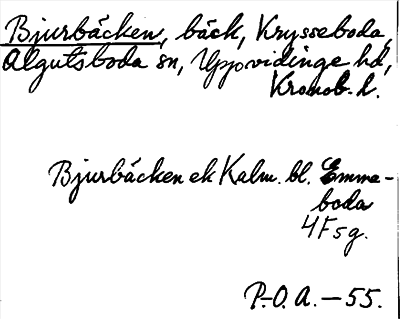 Bjurbäcken, bäck, Krysseboda,
Algutsboda sn, Uppvidinge hd,
Kronob. l.
Bjurbäcken ek Kalm. bl. Emma-
boda
4F5g.
P.-O. A. - 55.